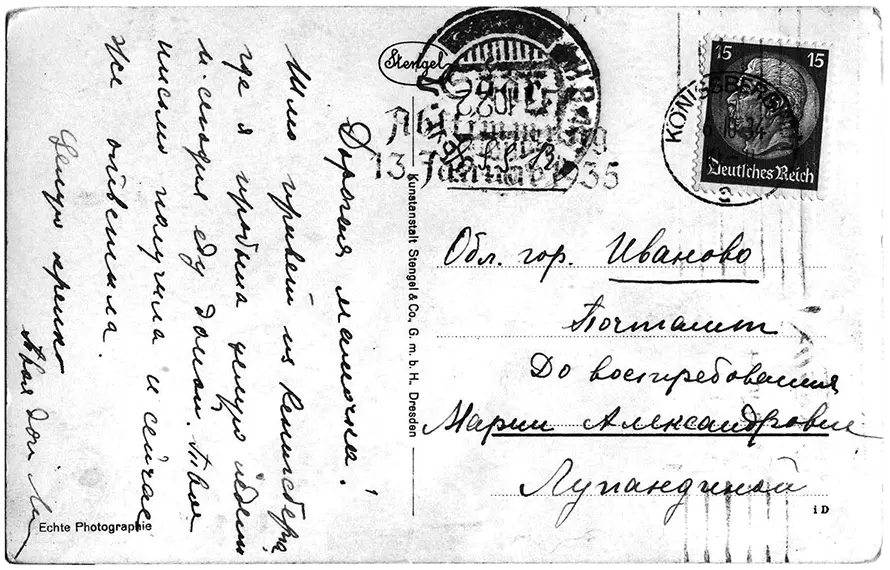 Дорогая мамочка!
Шлю привет из Кенигсберга,
где я пробыла целую неделю
и сегодня еду домой. Твое
письмо получила и сейчас
же ответила.
Целую крепко
Твоя
Echte Photographie
Stengel
Kunstanstalt Stengel & Co., G. m. b. H., Dresden
Abstimmung
13. Januar 1935
KÖNIGSBERG
15 15
Deutsches Reich
Обл. гор. Иваново
Почтамт
До востребования
Марии Александровне
Лупандиной
1 D